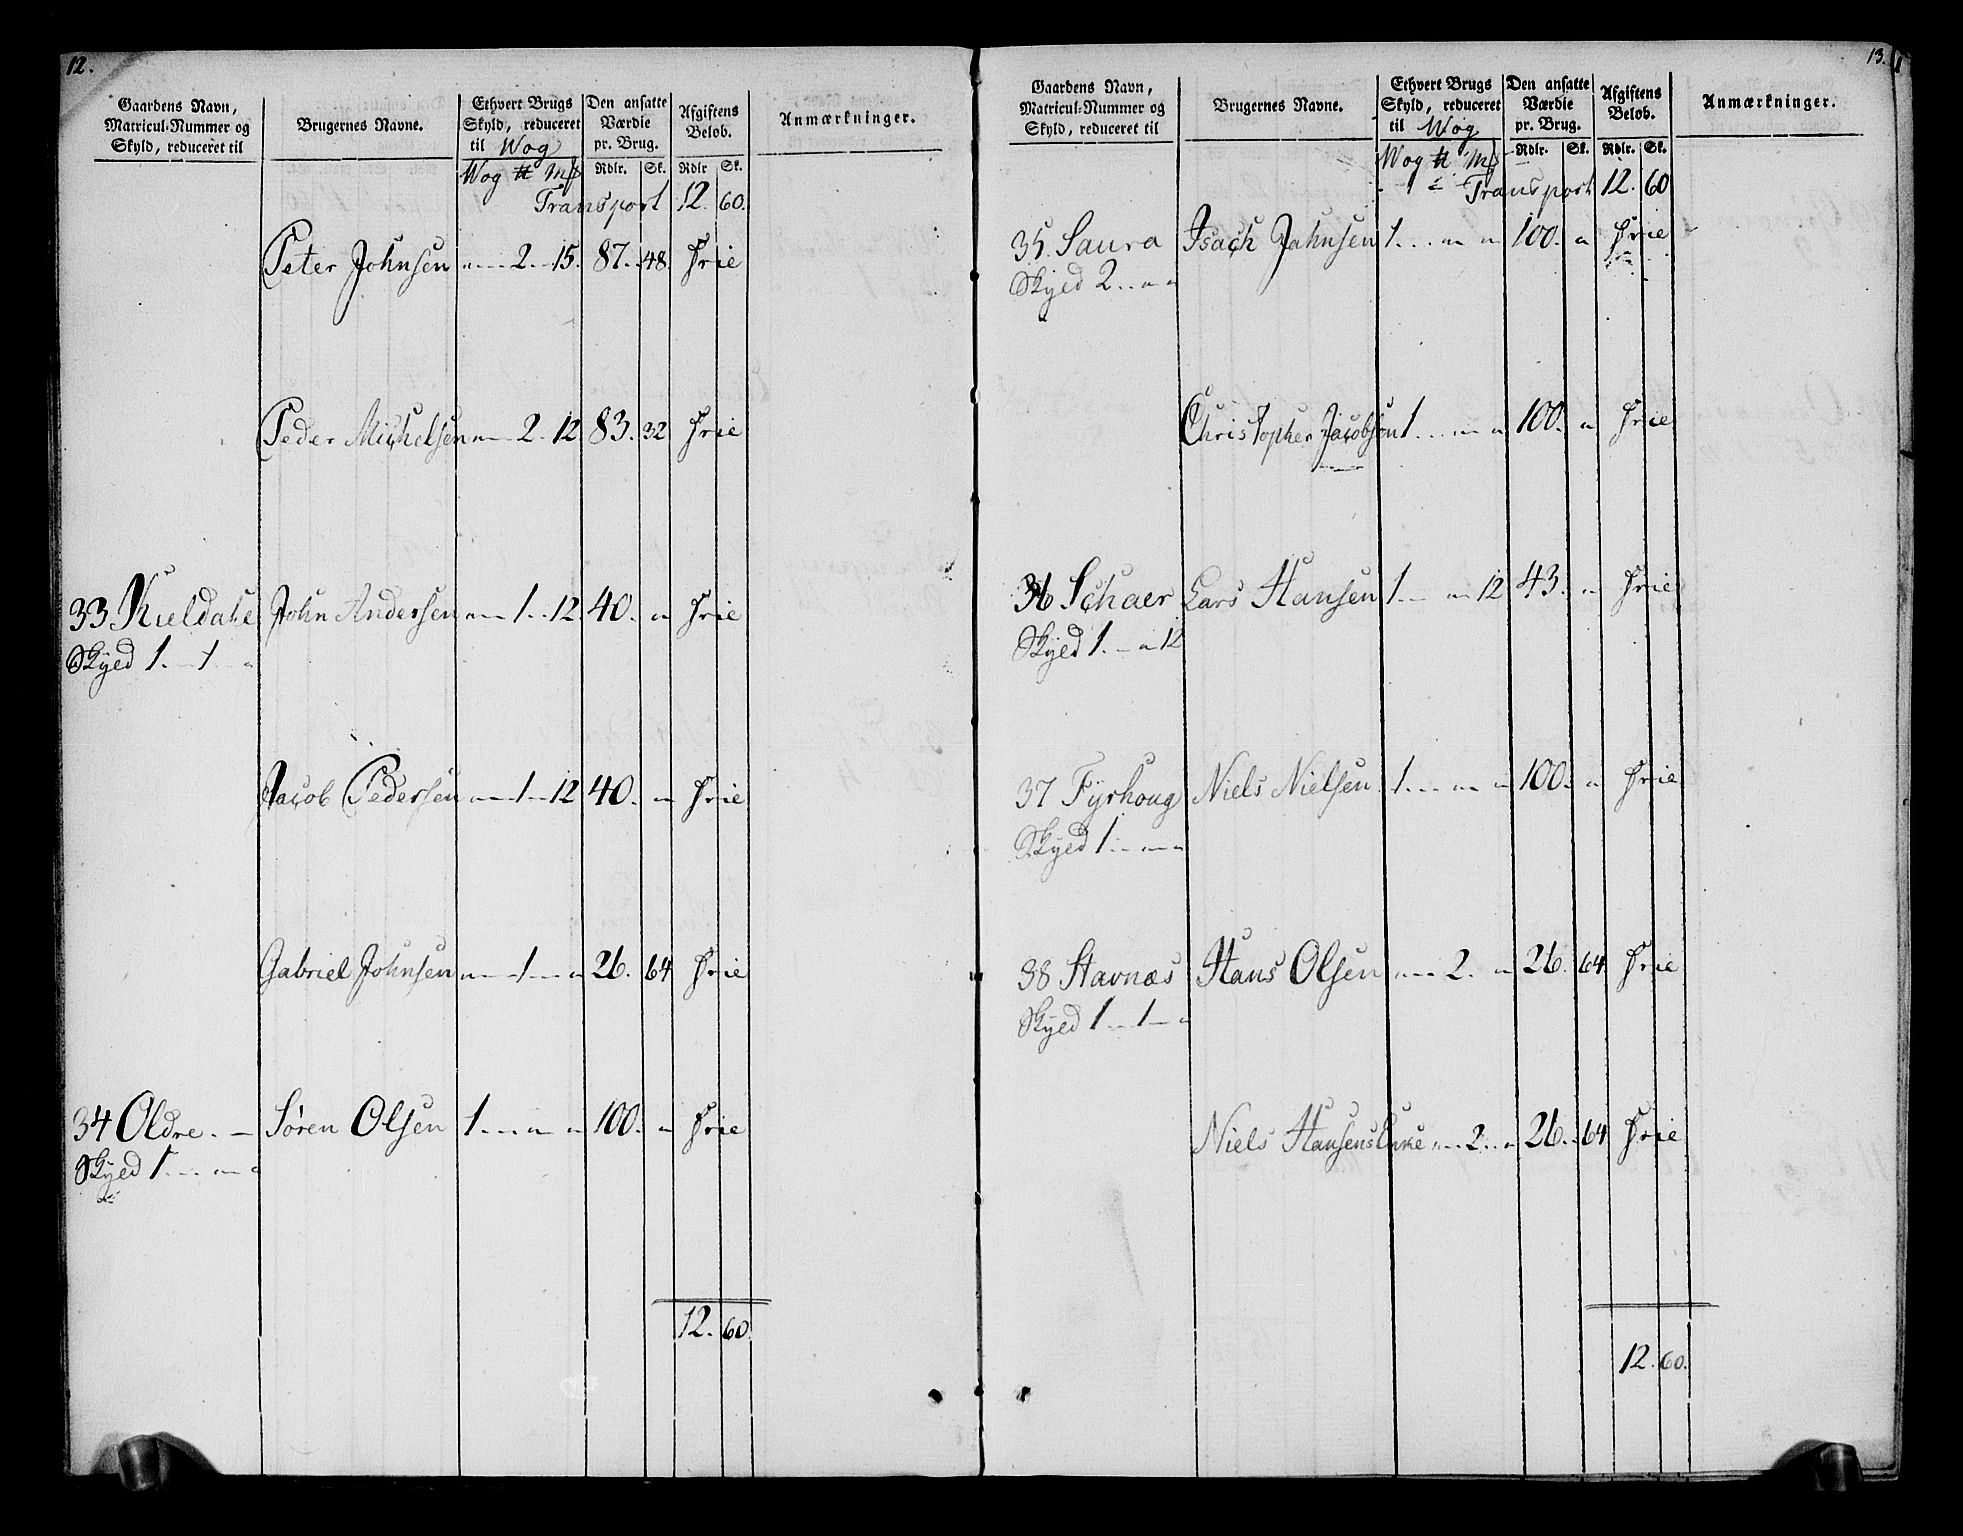 12.
Gaardens Navn, Matricul-Nummer og Skyld, reduceret til
Brugernes Navne.
Ethvert Brugs Skyld, reduceret til Wog
Den ansatte Værdie pr. Brug.
Afgiftens Beløb.
Anmærkninger.
Wog ℔ Mk Rdlr. Sk. Rdlr Sk.
Transport 12. 60.
Peter Johnsen „ 2. 15. 87. 48. Frie
Peder Michelsen „ 2. 12 83. 32 Frie
33 Kieldahl John Andersen „ 1. 12. 40. „ Frie
Skyed 1. 1 „
Jacob Pedersen „ 1. 12 40. „ Frie
Gabriel Johnsen „ 1 „ 26. 64 Frie
34 Oldre. Søren Olsen 1. „ „ 100. „ Frie
Skyed 1. „ „
12. 60.
13.
Gaardens Navn, Matricul-Nummer og Skyld, reduceret til
Brugernes Navne.
Ethvert Brugs Skyld, reduceret til Wog
Den ansatte Værdie pr. Brug.
Afgiftens Beløb.
Anmærkninger.
Wog ℔ Mk Rdlr. Sk. Rdlr. Sk.
Transport 12. 60
35. Saura Isach Jahnsen 1. „ „ 100. „ Frie
Skyed 2. „ „
Christopher Jacobsen 1. „ „ 100. „ Frie
36 Schaer Lars Hansen 1. „ 12 43. „ Frie
Skyed 1. „ 12
37 Fyrhoug Niels Nielsen 1. „ „ 100. „ Frie
Skyed 1. „ „
38 Stavnæs Hans Olsen „ 2. „ 26. 64. Frie
Skyed 1. 1 „
Niels Hansens Enke „ 2. „ 26. 64 Frie
12. 60.